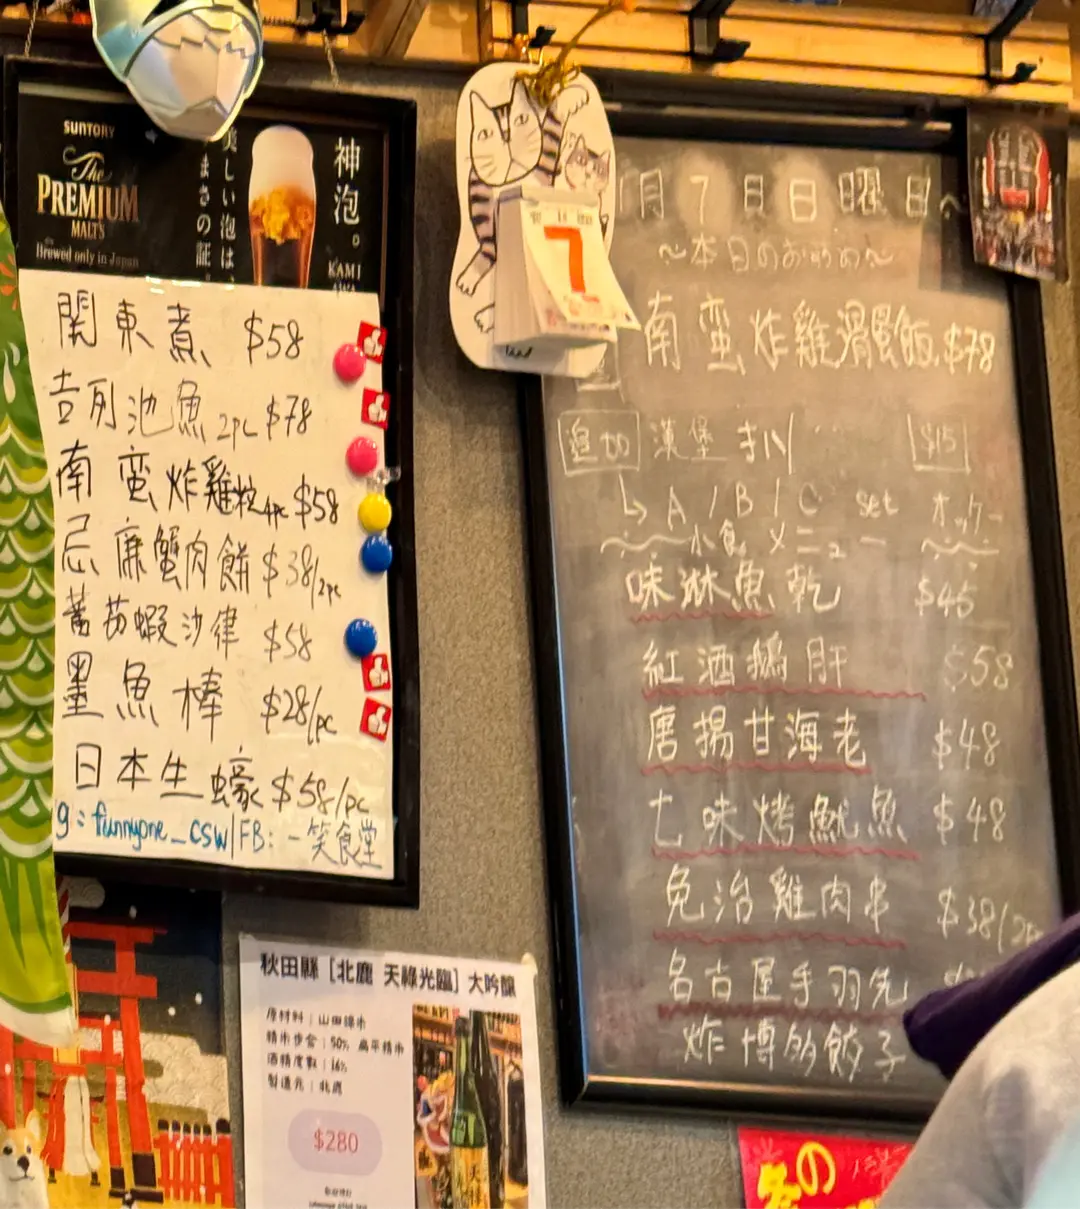 SUNTORY
The
PREMIUM
MALT'S
Brewed only in Japan
美しい泡は、
うまさの証。
神泡。
KAMI
關東煮 $58
吉列池魚 2pc $78
南蛮炸雞粒 4pc $58
忌廉蟹肉餅 $38/2pc
蕃茄蝦沙律 $58
墨魚棒 $28/pc
日本生蠔 $58/pc
g: funnyone_csw/FB: 一笑食堂
秋田縣 [北鹿 天祿光臨] 大吟釀
原材料：山田錦市
精米步合：50% 扁平精市
酒精度數：16%
製造元：北鹿
$280
7
1月7日日曜日
~本日のおすすめ~
南蛮炸雞滑蛋飯 $78
追加 漢堡扒 $15
↳ A / B / C set
小食
味淋魚乾 $45
紅酒鵝肝 $58
唐揚甘海老 $48
七味烤魷魚 $48
免治雞肉串 $38/2pc
名古屋手羽先
炸博多餃子
の